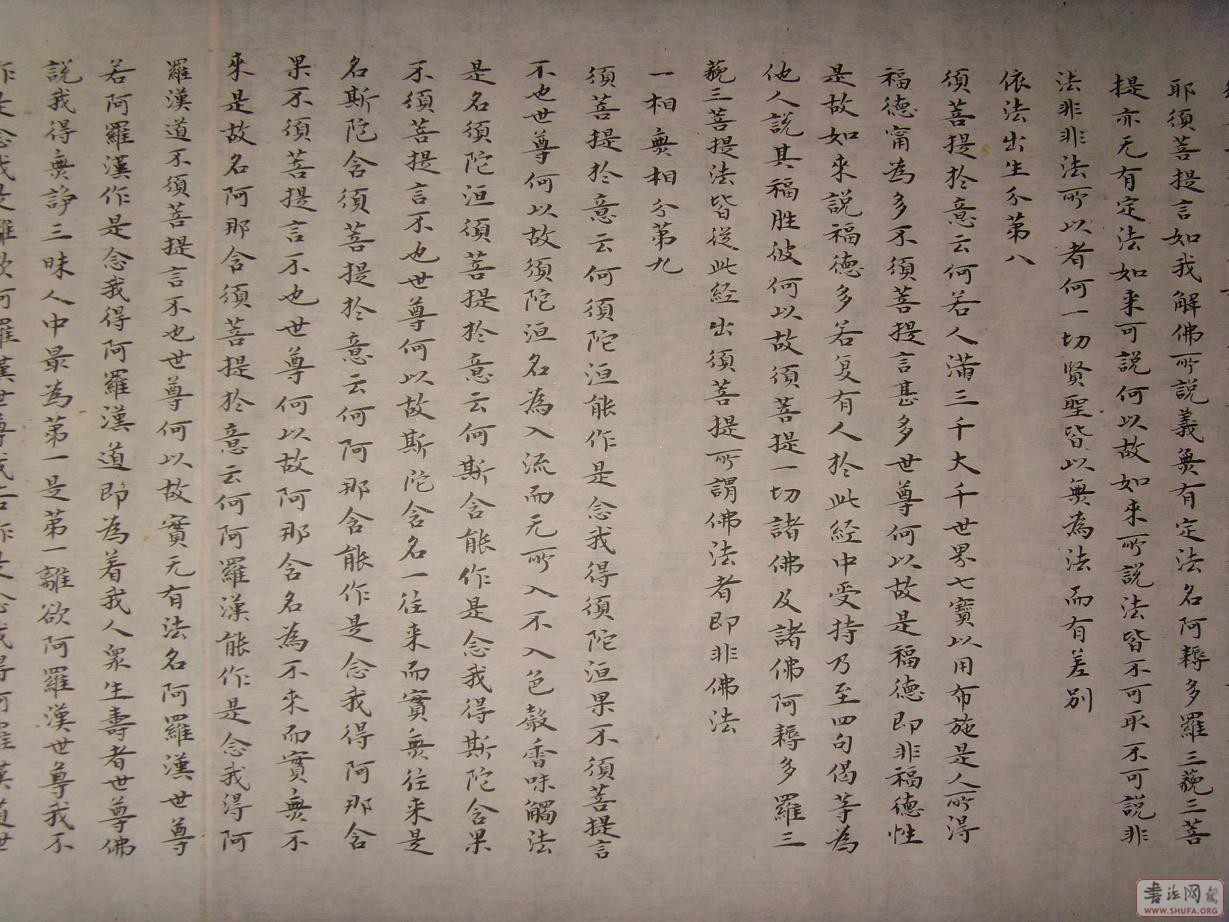 耶须菩提言如我解佛所説義無有定法名阿耨多羅三藐三菩
提亦无有定法如来可説何以故如来所説法皆不可取不可説非
法非非法所以者何一切賢聖皆以無為法而有差别
依法出生分第八
須菩提扵意云何若人滿三千大千世界七寶以用布施是人所得
福德甯為多不須菩提言甚多世尊何以故是福德即非福德性
是故如来説福德多若复有人扵此經中受持乃至四句偈等為
他人説其福胜彼何以故須菩提一切諸佛及諸佛阿耨多羅三
藐三菩提法皆從此經出須菩提所謂佛法者即非佛法
一相無相分第九
須菩提扵意云何須陀洹能作是念我得須陀洹果不須菩提言
不也世尊何以故須陀洹名為入流而无所入不入色聲香味觸法
是名須陀洹須菩提扵意云何斯含能作是念我得斯陀含果
不須菩提言不也世尊何以故斯陀含名一往来而實無往来是
名斯陀含須菩提扵意云何阿那含能作是念我得阿那含
果不須菩提言不也世尊何以故阿那含名為不来而實無不
来是故名阿那含須菩提扵意云何阿羅漢能作是念我得阿
羅漢道不須菩提言不也世尊何以故實无有法名阿羅漢世尊
若阿羅漢作是念我得阿羅漢道即為着我人衆生壽者世尊佛
説我得無諍三昧人中最為第一是第一離欲阿羅漢世尊我不
作是念我是離欲阿羅漢世尊我若作是念我得阿羅漢道世
書法网
WWW.SHUFA.ORG